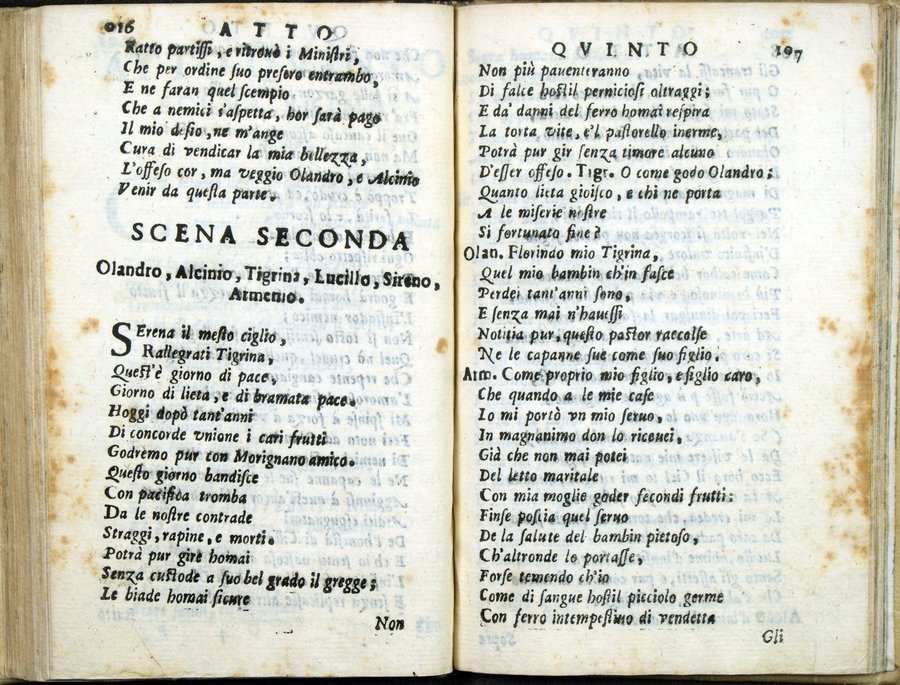 016 ATTO
Ratto partissi, e ritrouò i Ministri,
Che per ordine suo presero entrambo,
E ne faran quel scempio
Che a nemici s'aspetta, hor sarà pago
Il mio desio, ne m'ange
Cura di vendicar la mia bellezza,
L'offeso cor, ma veggio Olandro, e Alcinio
Venir da questa parte.
SCENA SECONDA
Olandro, Alcinio, Tigrina, Lucillo, Sireno,
Armenio.
SErena il mesto ciglio,
Rallegrati Tigrina,
Quest'è giorno di pace,
Giorno di lieta, e di bramata pace.
Hoggi dopò tant'anni
Di concorde vnione i cari frutti
Godremo pur con Morignano amico.
Questo giorno bandisce
Con pacifica tromba
Da le nostre contrade
Straggi, rapine, e morti.
Potrà pur gire homai
Senza custode a suo bel grado il gregge;
Le biade homai sicure
Non
QVINTO 197
Non più pauenteranno
Di falce hostil perniciosi oltraggi;
E da' danni del ferro homai respira
La torta vite, e'l pastorello inerme,
Potrà pur gir senza timore alcuno
D'esser offeso. Tigr. O come godo Olandro;
Quanto lieta gioisco, e chi ne porta
A le miserie nostre
Si fortunato fine?
Olan. Florindo mio Tigrina,
Quel mio bambin ch'in fasce
Perdei tant'anni sono,
E senza mai n'hauessi
Notitia pur, questo pastor raccolse
Ne le capanne sue come suo figlio.
Arm. Come proprio mio figlio, e figlio caro,
Che quando a le mie case
Io mi portò vn mio seruo,
In magnanimo don lo riceuei,
Già che non mai potei
Del letto maritale
Con mia moglie goder fecondi frutti:
Finse poscia quel seruo
De la salute del bambin pietoso,
Ch'altronde lo portasse,
Forse temendo ch'io
Come di sangue hostil picciolo germe
Con ferro intempestiuo di vendetta
Gli